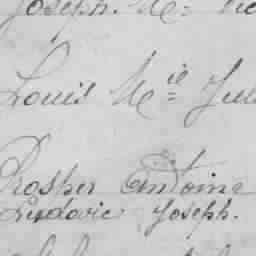 Joseph. M=
Louis M^ie= Jul
Prosper Antoine
Ludovic Joseph.